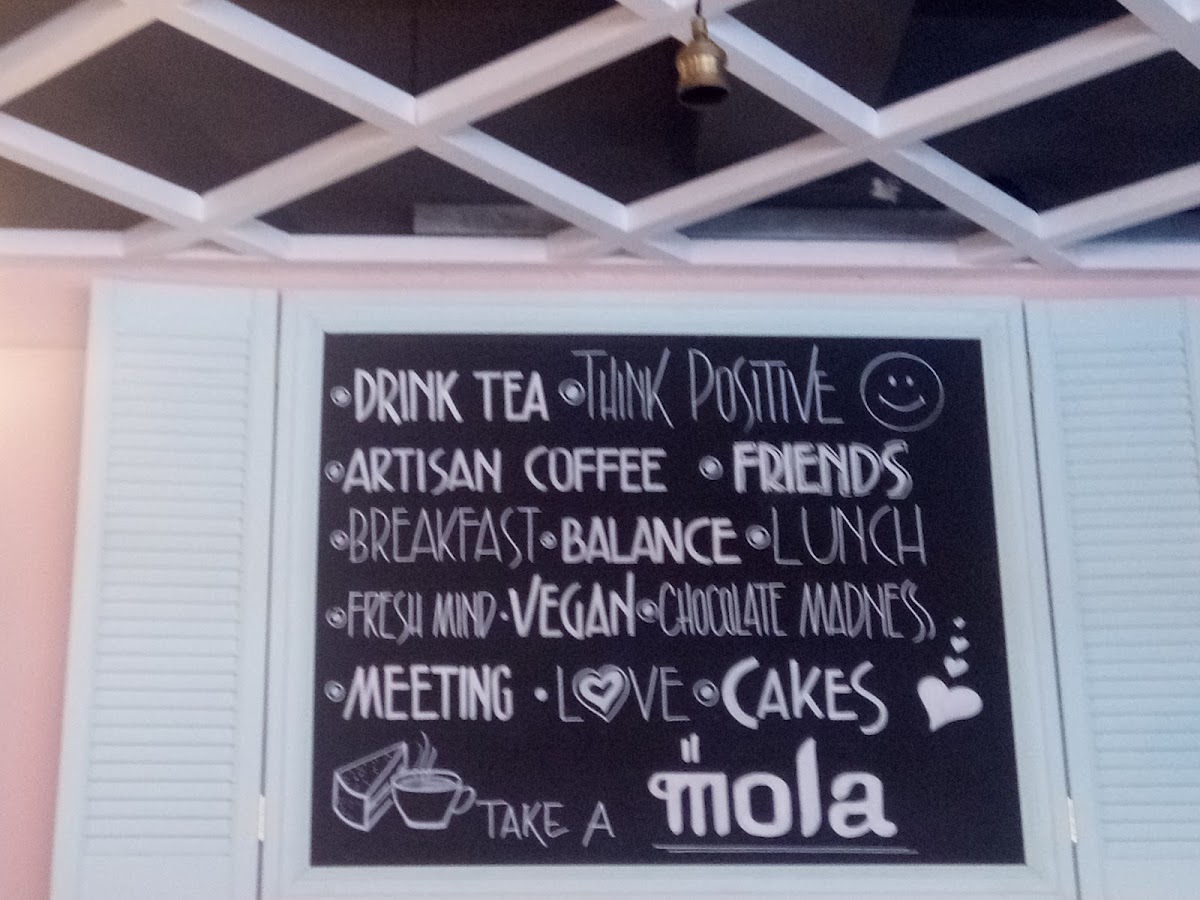 • DRINK TEA • THINK POSITIVE
• ARTISAN COFFEE • FRIENDS
• BREAKFAST • BALANCE • LUNCH
• FRESH MIND • VEGAN • CHOCOLATE MADNESS
• MEETING • LOVE • CAKES
TAKE A il mola